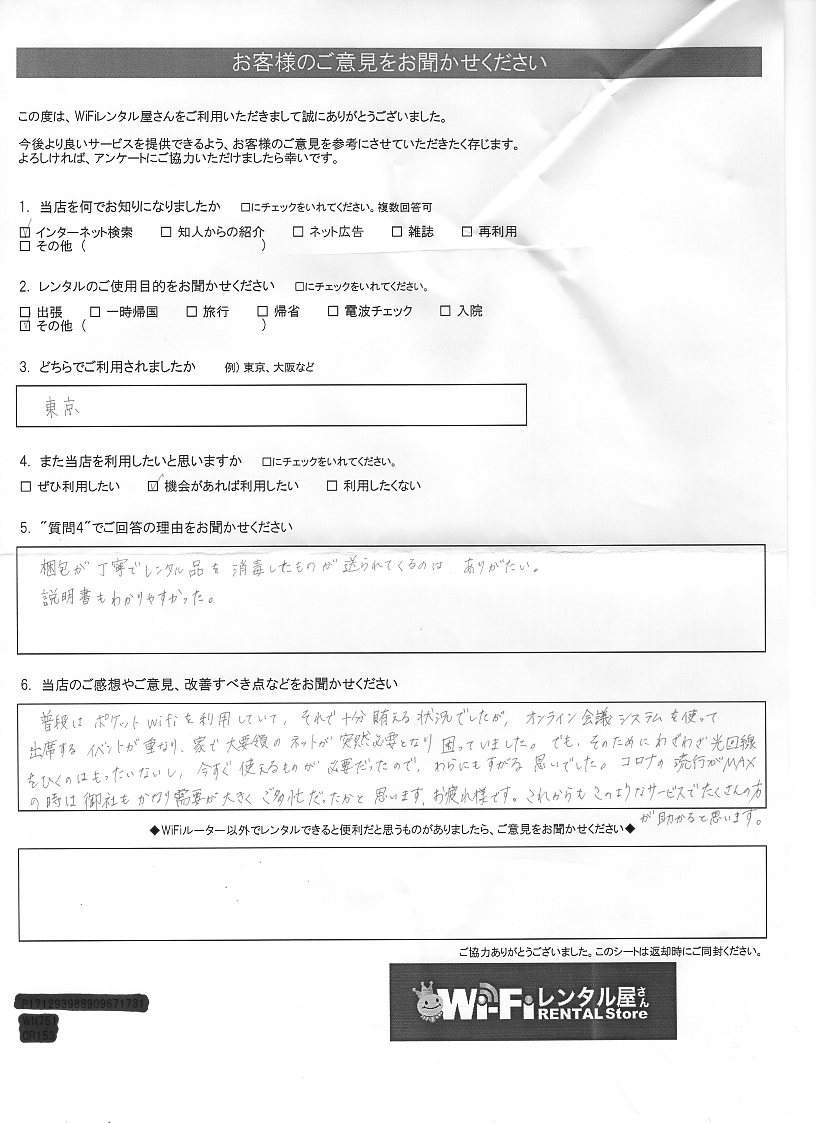 お客様のご意見をお聞かせください
この度は、WiFiレンタル屋さんをご利用いただきまして誠にありがとうございました。
今後より良いサービスを提供できるよう、お客様のご意見を参考にさせていただきたく存じます。
よろしければ、アンケートにご協力いただけましたら幸いです。
1. 当店を何でお知りになりましたか □にチェックをいれてください。複数回答可
☑ インターネット検索 □ 知人からの紹介 □ ネット広告 □ 雑誌 □ 再利用
□ その他 ( )
2. レンタルのご使用目的をお聞かせください □にチェックをいれてください。
□ 出張 □ 一時帰国 □ 旅行 □ 帰省 □ 電波チェック □ 入院
☑ その他 ( )
3. どちらでご利用されましたか 例) 東京、大阪など
東京
4. また当店を利用したいと思いますか □にチェックをいれてください。
□ ぜひ利用したい ☑ 機会があれば利用したい □ 利用したくない
5. "質問4"でご回答の理由をお聞かせください
梱包が丁寧でレンタル品を消毒したものが送られてくるのは、ありがたい。
説明書もわかりやすかった。
6. 当店のご感想やご意見、改善すべき点などをお聞かせください
普段はポケットwifiを利用していて、それで十分賄える状況でしたが、オンライン会議システムを使って
出席するイベントが重なり、家で大要領のネットが突然必要となり困っていました。でも、そのためにわざわざ光回線
をひくのはもったいないし、今すぐ使えるものが必要だったので、わらにもすがる思いでした。コロナの流行がMAX
の時は御社もかなり需要が大きくご多忙だったかと思います、お疲れ様です。これからもこのようなサービスでたくさんの方
が助かると思います。
◆WiFiルーター以外でレンタルできると便利だと思うものがありましたら、ご意見をお聞かせください◆
ご協力ありがとうございました。このシートは返却時にご同封ください。
Wi-Fiレンタル屋さん
RENTAL Store
P171293988909671731
WN751
CR153